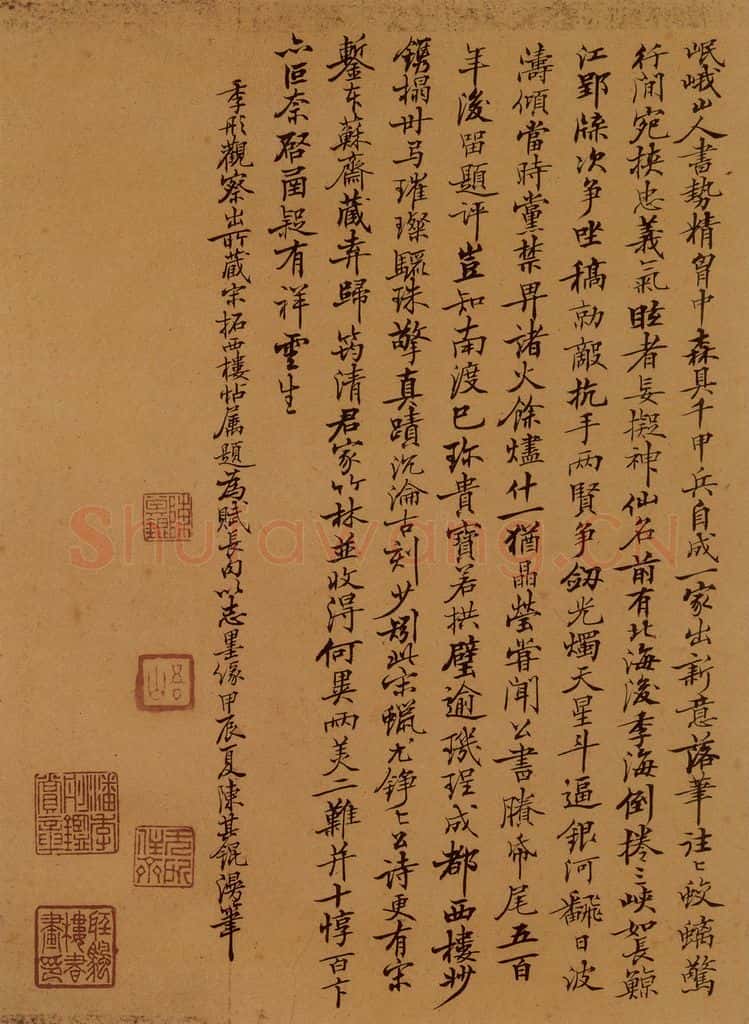 岷峨山人書勢精胷中森具千甲兵自成一家出新意落筆往〻蛟螭驚
行間宛挾忠義氣者妄擬神仙名前有北海後季海倒捲三峽如長鯨
江郢牒次爭坐稿勍敵抗手兩賢爭劔光燭天星斗逼銀河飜日波
濤傾當時黨禁畀諸火餘燼什一猶晶瑩甞聞公書賸帋尾五百
年後留題評豈知南渡已珍貴寶若拱璧逾璣珵成都西樓妙
鐫搨卌弓璀璨驪珠擎真蹟沉淪古刻少矧此宋蠟尤錚〻公詩更有宋
鏨本蘇齋藏弆歸筠清君家竹林並收得何異兩美二難并十惇百卞
亦叵奈啓函疑有祥雲生
季彤觀察出所藏宋拓西樓帖属題為賦長句以志墨緣甲辰夏陳其錕漫筆
Shufawang.CN